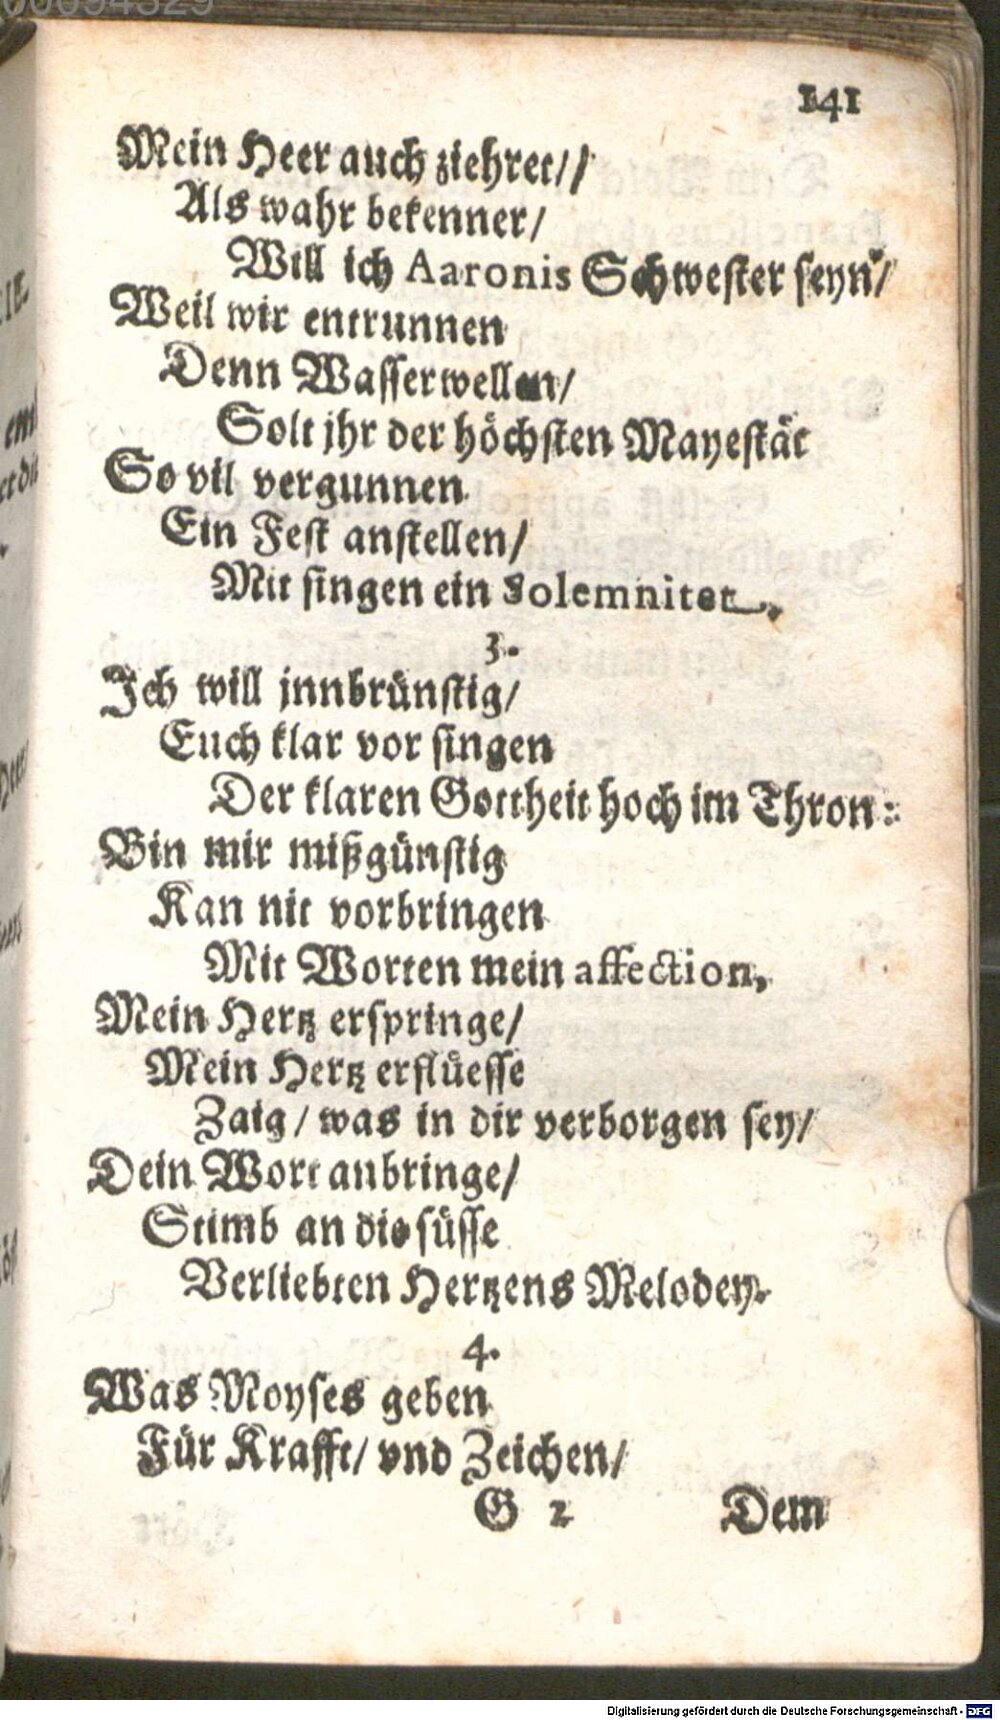 141
Mein Heer auch ziehret//
Als wahr bekenner/
Will ich Aaronis Schwester seyn/
Weil wir entrunnen
Denn Wasserwellen/
Solt jhr der höchsten Mayestät
So vil vergunnen
Ein Fest anstellen/
Mit singen ein Solemnitet.
3.
Ich will jnnbrünstig/
Euch klar vor singen
Der klaren Gottheit hoch im Thron:
Bin mir mißgünstig
Kan nit vorbringen
Mit Worten mein affection,
Mein Hertz erspringe/
Mein Hertz erflüesse
Zaig/ was in dir verborgen sey/
Dein Wort anbringe/
Stimb an die süsse
Verliebten Hertzens Melodey.
4.
Was Moyses geben
Für Krafft/ vnd Zeichen/
G 2 Dem
Digitalisierung gefördert durch die Deutsche Forschungsgemeinschaft - DFG